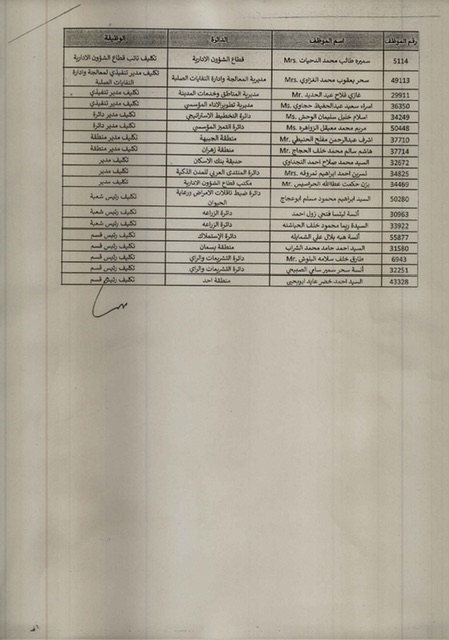 رقم الموظف اسم الموظف الدائرة الوظيفة
5114 سميره طالب محمد الدحيات Mrs. قطاع الشؤون الادارية تكليف نائب قطاع الشؤون الادارية
49113 سحر يعقوب محمد الغزاوي Mrs. مديرية المعالجة وادارة النفايات الصلبة تكليف مدير تنفيذي لمعالجة وادارة
النفايات الصلبة
29911 غازي فلاح عبد الحديد Mr. مديرية المناطق وخدمات المدينة تكليف مدير تنفيذي
36350 اسراء سعيد عبدالحفيظ حجاوي Ms. مديرية تطوير الاداء المؤسسي تكليف مدير تنفيذي
34249 اسلام خليل سليمان الوحش Ms. دائرة التخطيط الاستراتيجي تكليف مدير دائرة
50448 مريم محمد معيقل الزواهره Ms. دائرة التميز المؤسسي تكليف مدير دائرة
37710 اشرف عبدالرحمن مفلح الحنيطي Mr. منطقة الجبيهة تكليف مدير منطقة
37714 هاشم سالم محمد خلف الحجاج Mr. منطقة زهران تكليف مدير منطقة
32672 السيد محمد صلاح احمد النجداوي حديقة بنك الاسكان تكليف مدير
34825 نسرين احمد ابراهيم Mrs. دائرة المنتدى العربي للمدن الذكية تكليف مدير
34469 يزن حكمت عطاالله الحراسيس Mr. مكتب قطاع الشؤون الادارية تكليف مدير
50280 السيد ابراهيم محمود مسلم ابوعجاج دائرة ضبط ناقلات الامراض ورعاية
الحيوان تكليف رئيس شعبة
30963 آنسة ليشا فتحي زول احمد دائرة الزراعه تكليف رئيس شعبة
33922 السيدة ريما محمود خلف الحباشنه دائرة الزراعه تكليف رئيس شعبة
55877 آنسة هبه بلال علي الشمايله دائرة الإستملاك تكليف رئيس قسم
31580 السيد احمد حامد محمد الشراب منطقة بسمان تكليف رئيس قسم
6943 طارق خلف سلامه البلوش Mr. دائرة التشريعات والراي تكليف رئيس قسم
32251 آنسة سحر سمير سامي الصبيحي دائرة التشريعات والراي تكليف رئيس قسم
43328 السيد احمد خضر عايد ابويحيى منطقة احد تكليف رئيس قسم